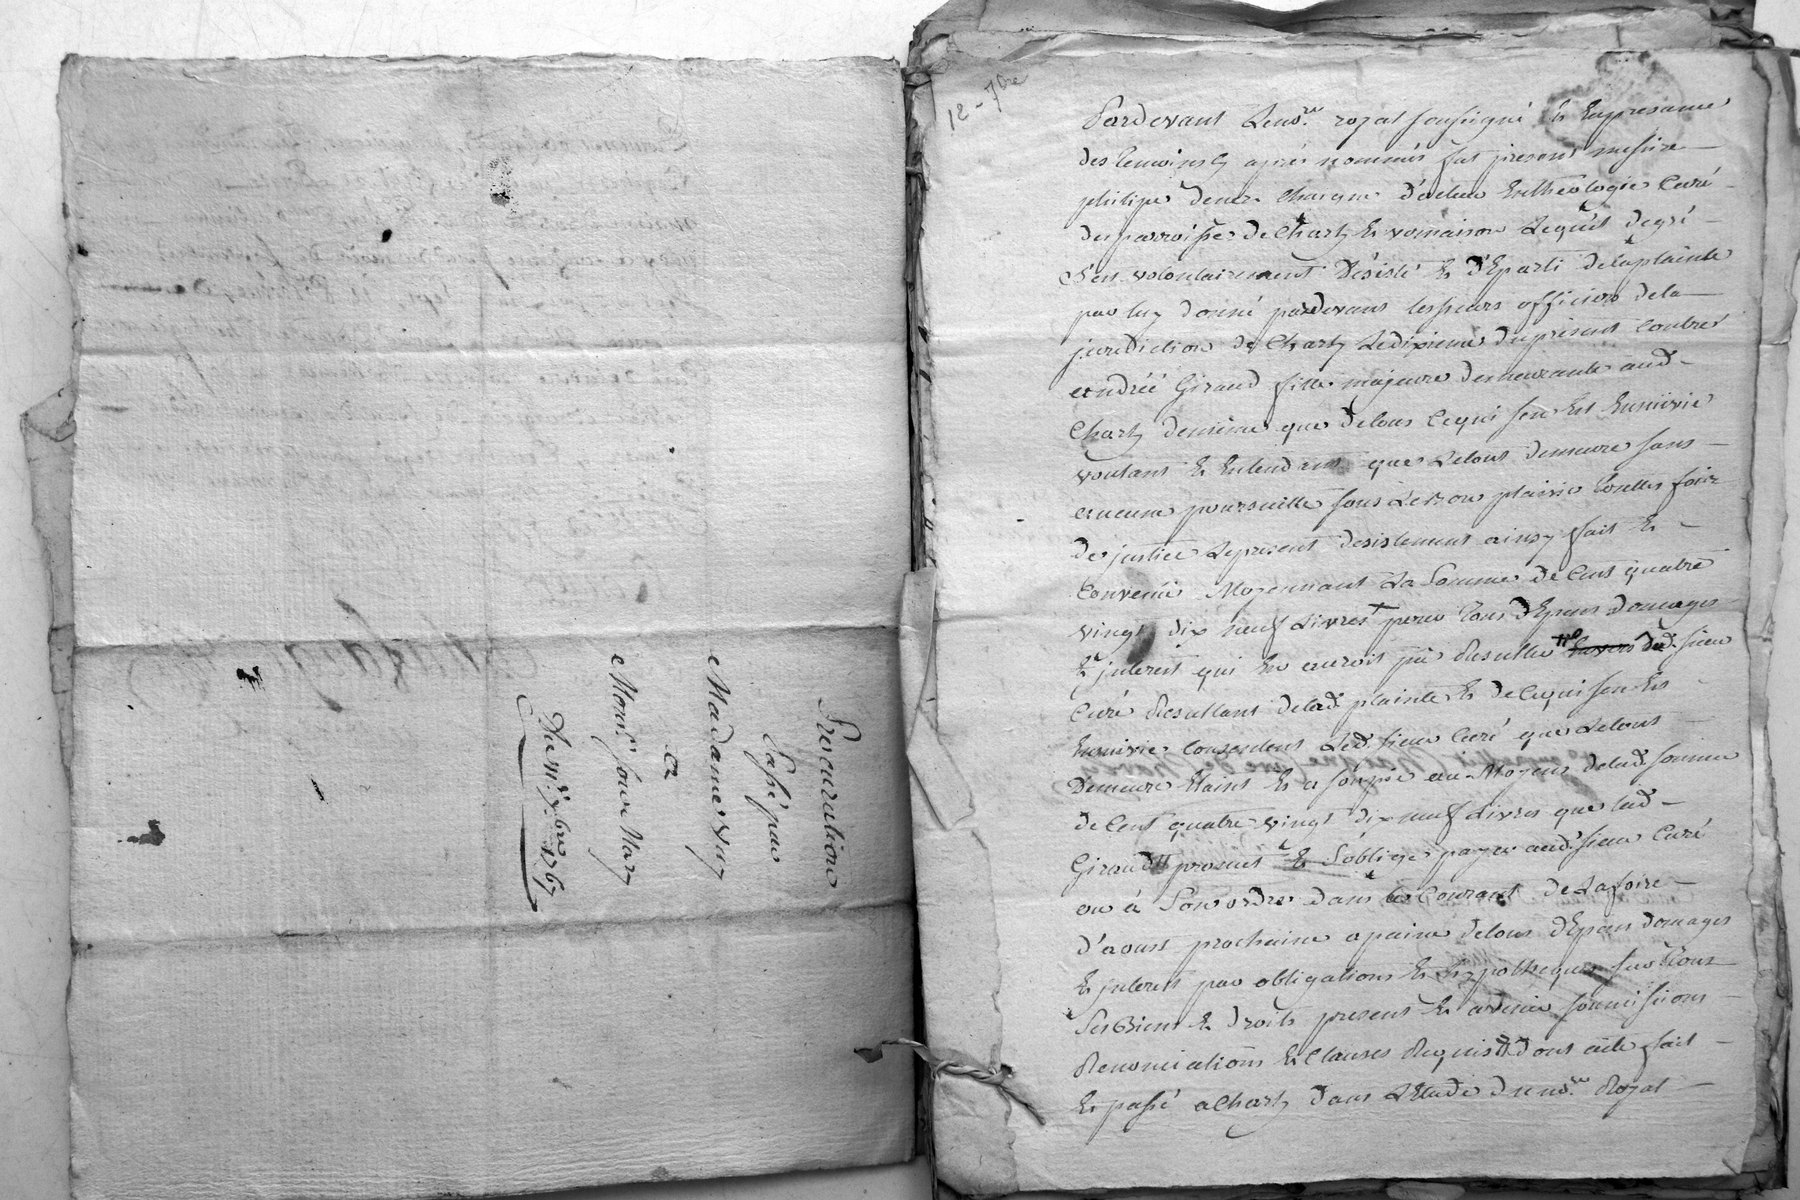 Procuration
Passé par
Madame Vuy
a
Monsr. 
Du 11e 7bre 1767
12 - 7bre
Pardevant Le nore. royal soussigné Et En presance
des temoins cy aprés nommés fut present messire
philipe Denis Chaigne docteur En theologie Curé
des parroisses de Charly Et vernaison Lequel de gré
s'est volontairement désisté Et départi de la plainte
par luy donné pardevant les sieurs officiers de la
juridiction de Charly Le dixieme du présent Contre
andrée Giraud fille majeure demeurante aud.
Charly de même que de tous Ce qui s'en Est Ensüivie
voulant Et Entendant que Le tout demeure sans
aucune poursuitte sous Le bon plaisir toutes fois
de justice Le present desistement ainsy fait Et
Convenü Moyennant La Somme de Cent quatre
vingt dix neuf Livres pour tous dépens domages
Et interest qui En auroit pü Resulter dud. sieur
Curé Resultant de lad. plainte Et de Ce qui s'en Est
Ensuivie Consentant Led. sieur Curé que Le tout
Demeure Etaint Et assoupie au Moyens de lad. somme
de Cent quatre vingt dix neuf Livres que lad.
Giraud promet Et S'oblige payer aud. sieur Curé
ou à Son ordre dans le Courant de La foire
d'aoust prochaine a paine de tous dépens domages
Et interest par obligations Et hypotheques sur tous
Ses Biens Et droits present Et avenir soumissions
Renonciations Et Clauses Requis dont acte fait
Et passé a Charly dans L'Etude du nore. Royal